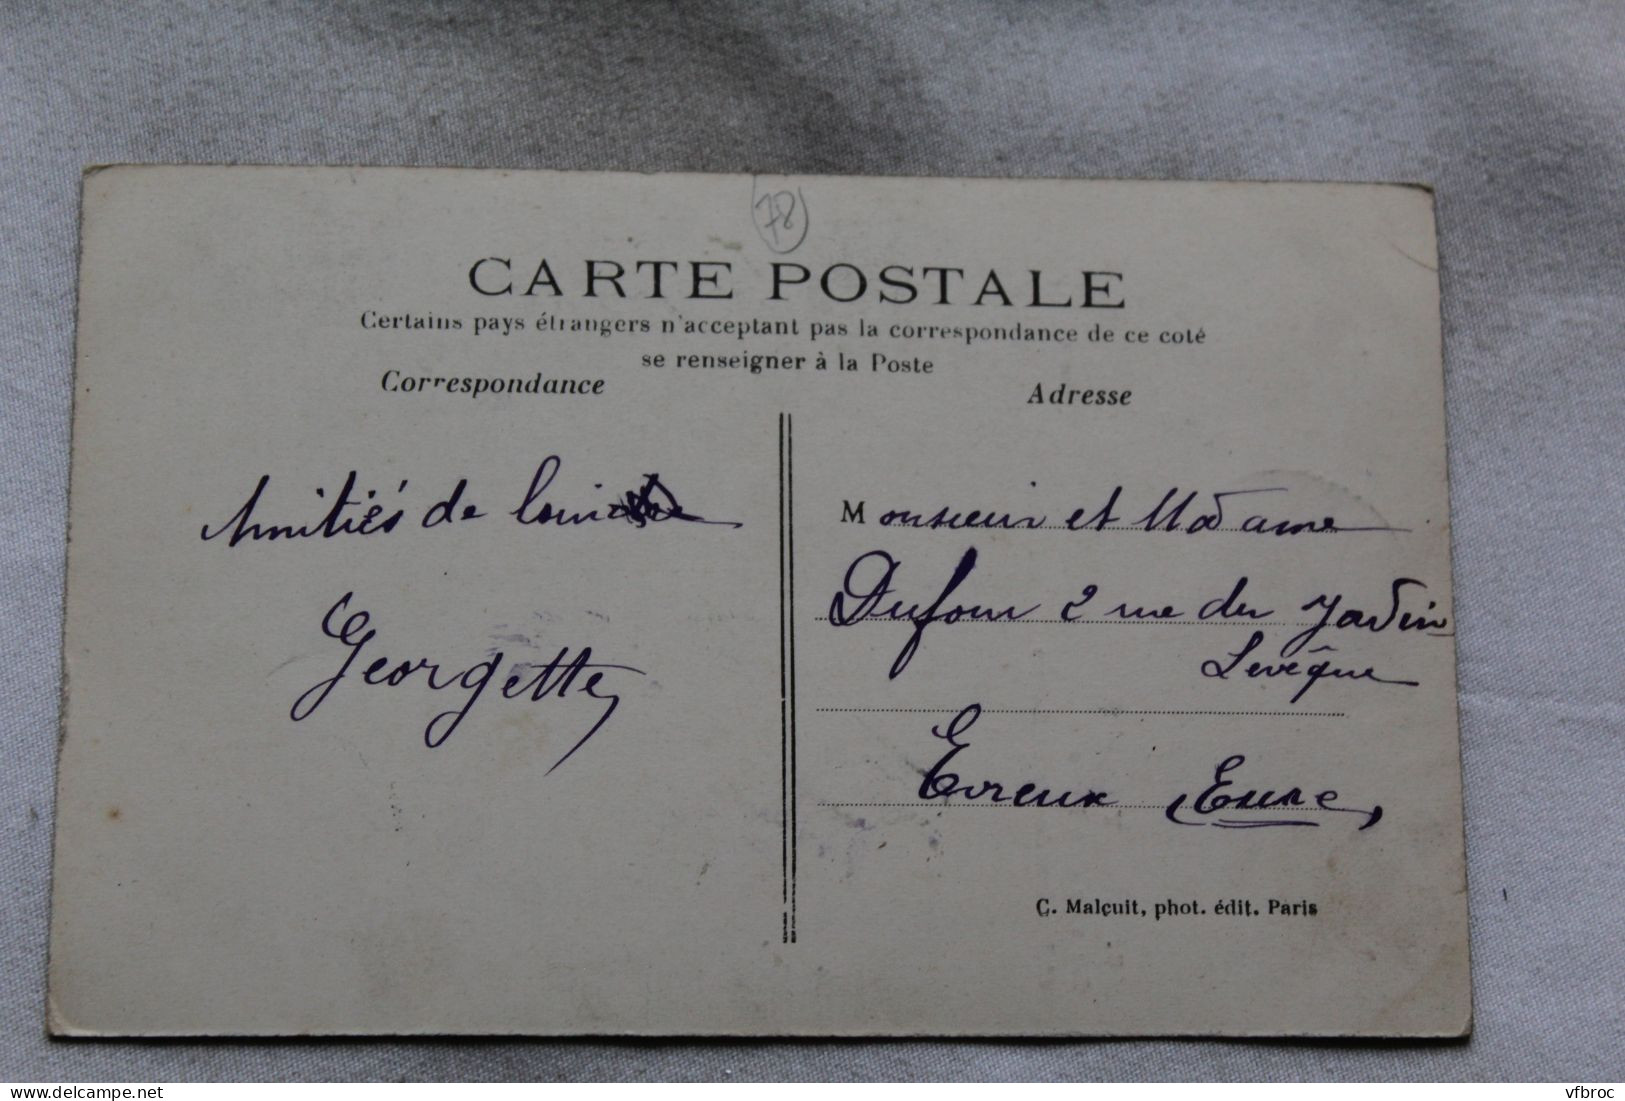 78
CARTE POSTALE
Certains pays étrangers n'acceptant pas la correspondance de ce coté
se renseigner à la Poste
Correspondance
Adresse
Amitiés de
Georgette
Monsieur et Madame
Dufour 2 rue du Jardin
Levêque
Evreux (Eure)
C. Malcuit, phot. édit. Paris
www.delcampe.net
vfbroc